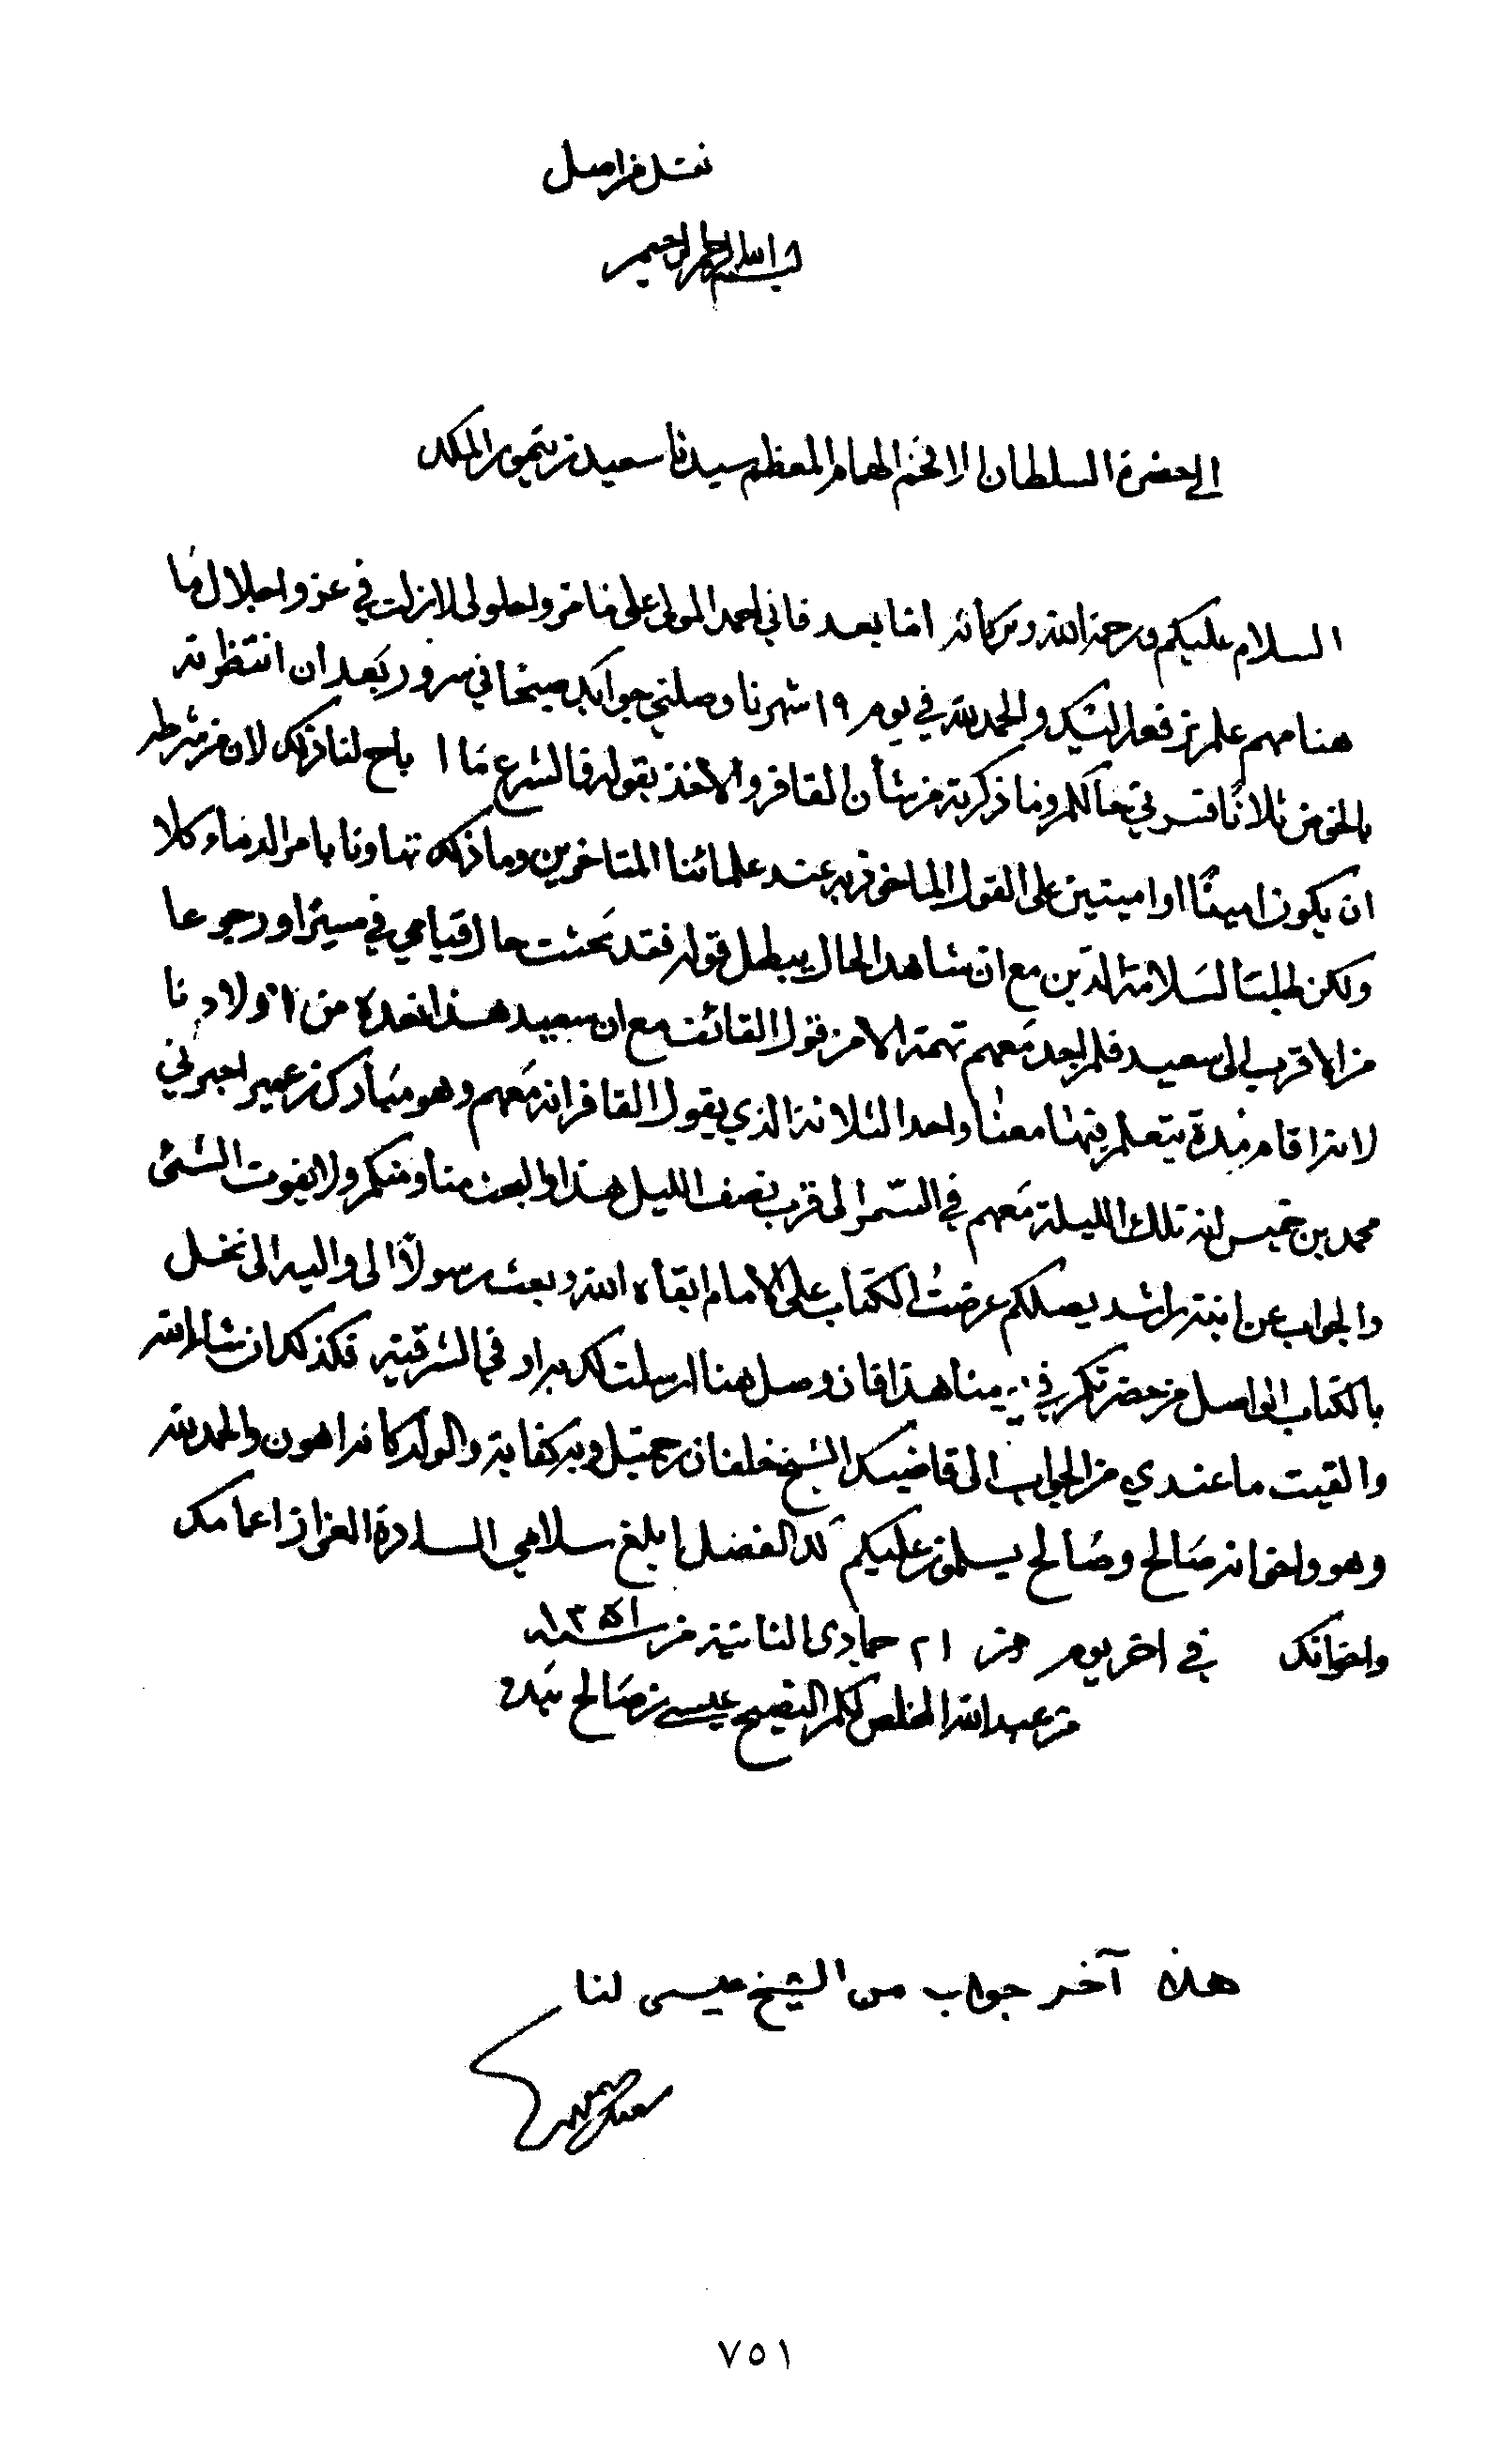 نقل من اصل
بسم الله الرحمن الرحيم
الى حضرة السلطان الافخم الهمام المعظم سيدنا سعيد بن تيمور الملك
السلام عليكم ورحمة الله وبركاته امّا بعد فاني احمد المولى على ما مرّ واحلولى لا زلت في عز واجلال مَا
هنا مهم علم نرفعه اليك والحمد لله في يوم ١٩ شهرنا وصلني جوابك صبحًا في سرور بَعد ان انتظرته
بالخوض ثلاثًا فسرني حالكم وما ذكرته من شأن القافر والاخذ بقوله فالشرع مَا اباح لنا ذلك لان من شرطه
ان يكون امينًا او امينين على القول الماخوذ به عند علمائنا المتاخرين وما ذلك تهاونا بامر الدماء كلا
ولكن طلبنا لسَلامة الدين مع ان مشاهد الحال يبطل قوله فقد بَحثت حال قيامي في مسيرًا ورجوعا
من الاقرب الى سعيد فلم اجد مَعهم تهمة الا من قول القائف مع ان سعيد هذا نعدّه من اولادنا
لانه اقام مُدة يتعلم فيهَا معنَا واحد الثلاثة الذي يقول القافر انه مَعهم وهو مبَارك بن عمير اخبرني
محمد بن خميس انه تلك الليلة مَعهم في السّمر الى قرب نصف الليل هذا والبحث منا ومنكم ولا يفوت الشئ
والجواب عن ابنة راشد يصلكم عرضتُ الكتاب على الامام ابقاه الله وبعث رسولًا الى واليه الى نخل
بالكتاب الواصل من حضرتكم في يومنا هذا فان وصل هنا ارسلت لك به او في الشرقية فكذلك ان شاء الله
والقيت ما عندي من الجواب الى قاضيك الشيخ خلفان بن جميّل وبه كفاية والولد كأنه اهون والحمد لله
وهو واخوانه صَالح وصَالح يسلمون عليكم لك الفضل ابلغ سلامي السادة العزاز اعمامك
واخوانك في اخر يوم من ٢١ جمادى الثانية من سنة ١٣٥١
من عبد الله المخلص لكم النصيح عيسى بن صَالح بيَده
هذه آخر جواب من الشيخ عيسى لنا
٧٥١